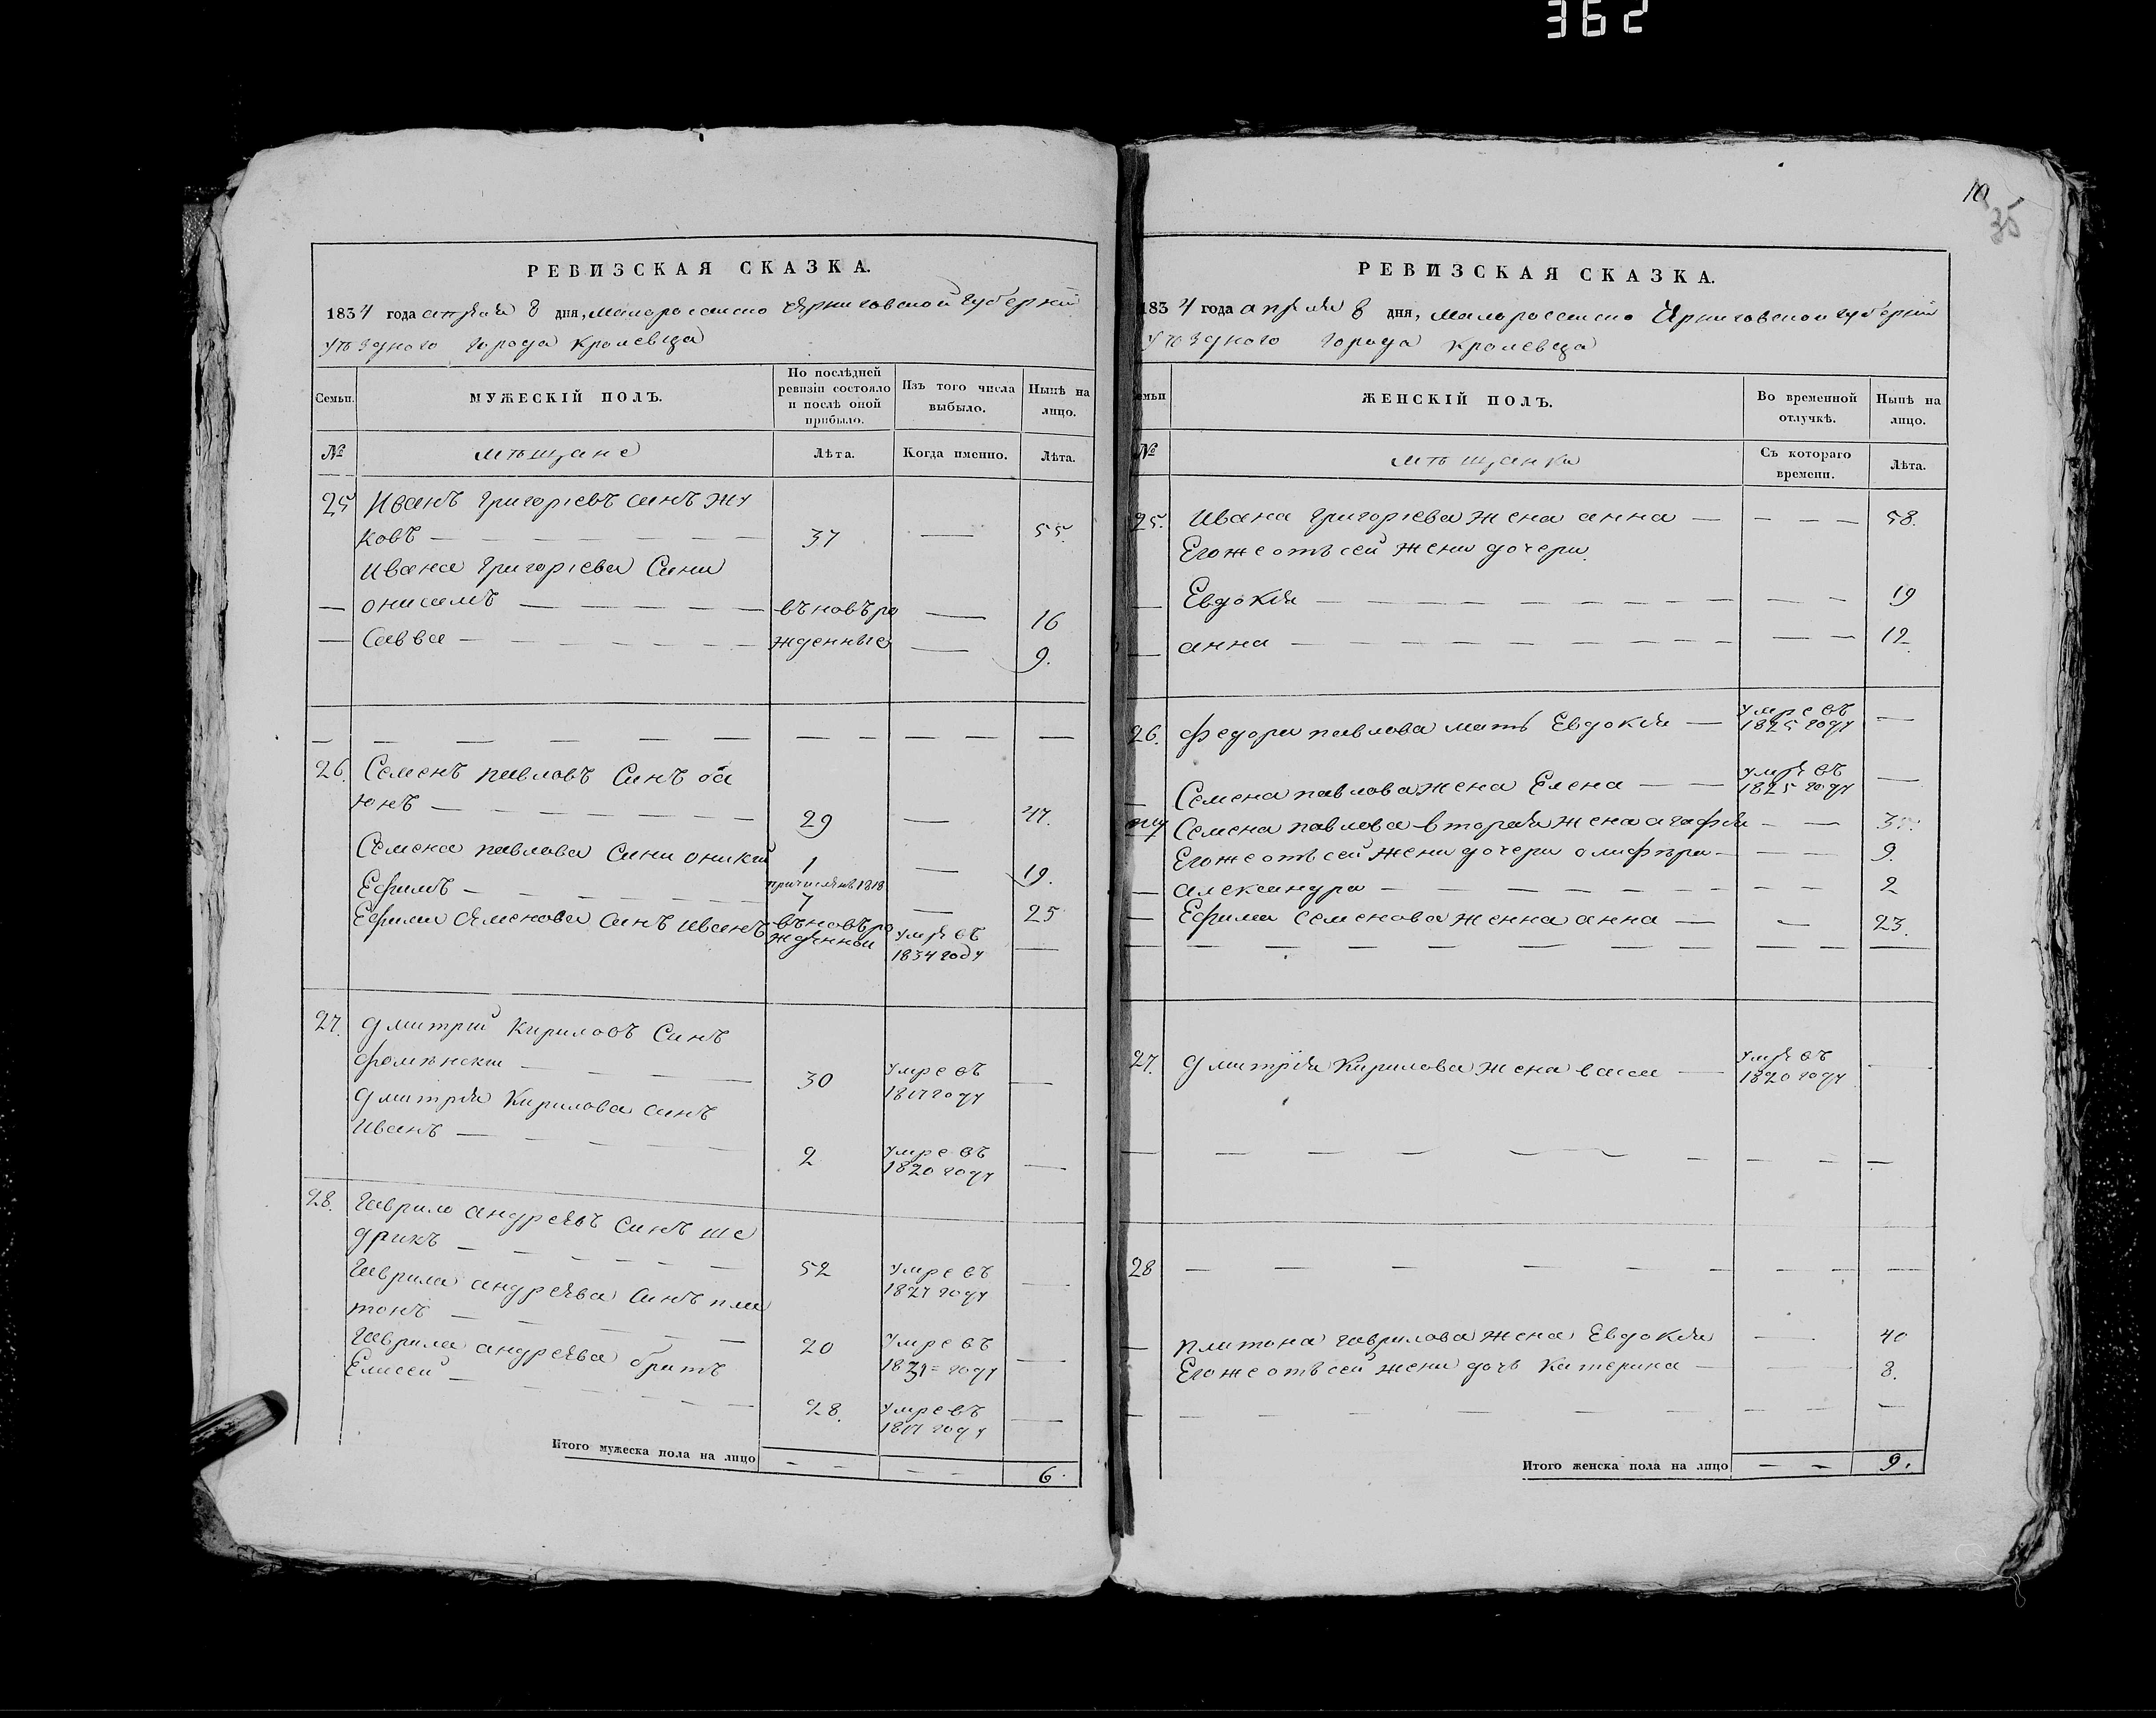 362
РЕВИЗСКАЯ СКАЗКА.
1834 года апреля 8 дня, малороссийско Черниговской губернии
уѣздного города Кролевца
Семьи.
МУЖЕСКІЙ ПОЛЪ.
По послѣдней ревизіи состояло и послѣ оной прибыло.
Изъ того числа выбыло.
Нынѣ на лицо.
№
мѣщане
Лѣта.
Когда именно.
Лѣта.
25 Иванъ Григорієвъ синъ Жу
ковъ — 37 — 55.
Ивана Григорієва Сини
онисимъ — въновъро — 16
Савва — жденные — 9.
26. Семенъ павловъ Синъ
юнъ — 29 — 47.
Семена павлова Сини оникій 1 — 19.
Ефимъ — 7 — 25
Ефима Семенова Синъ Иванъ въновъро жденной умре въ 1834 году —
27. Дмитрий Кириловъ Синъ
— 30 умре въ 1817 году —
Дмитрія Кирилова синъ
Иванъ — 2 умре въ 1820 году —
28. Гаврило андреевъ Синъ ше
дрикъ — 52 умре въ 1827 году —
Гаврила андреева Синъ пла
тонъ — 20 умре въ году —
Гаврила андреева братъ
Елисей — 28. умре въ 1817 году —
Итого мужеска пола на лицо — — 6.
10
35
РЕВИЗСКАЯ СКАЗКА.
1834 года апреля 8 дня, малороссийско Черниговской губернии
уѣздного города Кролевца
емьи
ЖЕНСКІЙ ПОЛЪ.
Во временной отлучкѣ.
Нынѣ на лицо.
№
мѣщанки
Съ котораго времени.
Лѣта.
25. Ивана Григорієва жена анна — 58.
Егоже отъ сей жени дочери
Евдокія — 19
анна — 12
26. Федора павлова мать Евдокія — умре въ 1825 году —
Семена павлова жена Елена — умре въ 1825 году —
Семена павлова вторая жена агафія — 35.
Егоже отъ сей жени дочери — 9.
александра — 2
Ефима Семенова женна анна — 23.
27. Дмитрія Кирилова жена васса — умре въ 1820 году —
28 —
платона гаврилова жена Евдокія — 40
Егоже отъ сей жени дочь Катерина — 8.
Итого женска пола на лицо — — 9.